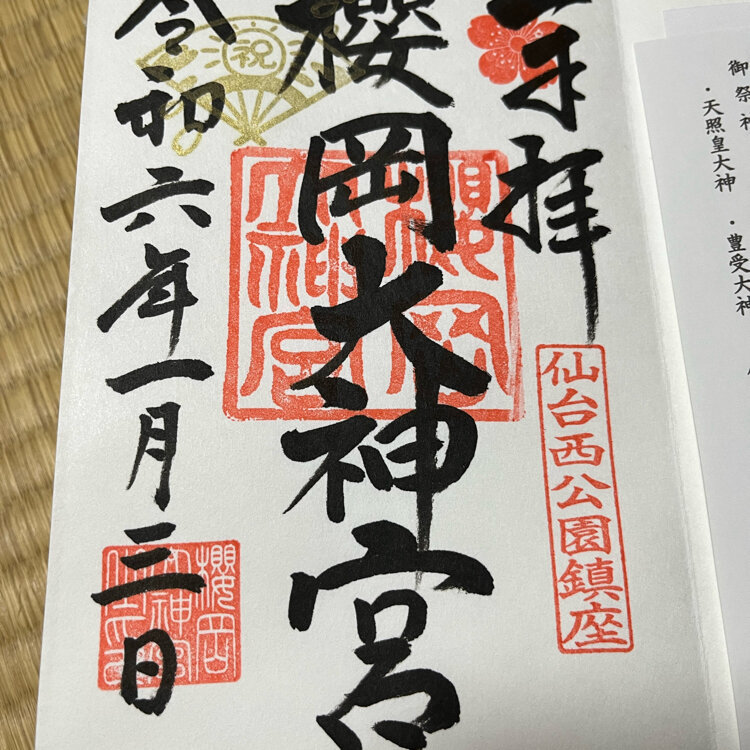 御祭神
・天照皇大神 ・豊受大神
奉拝
仙台西公園鎮座
櫻岡大神宮
櫻岡大神宮
祝
令和六年一月三日